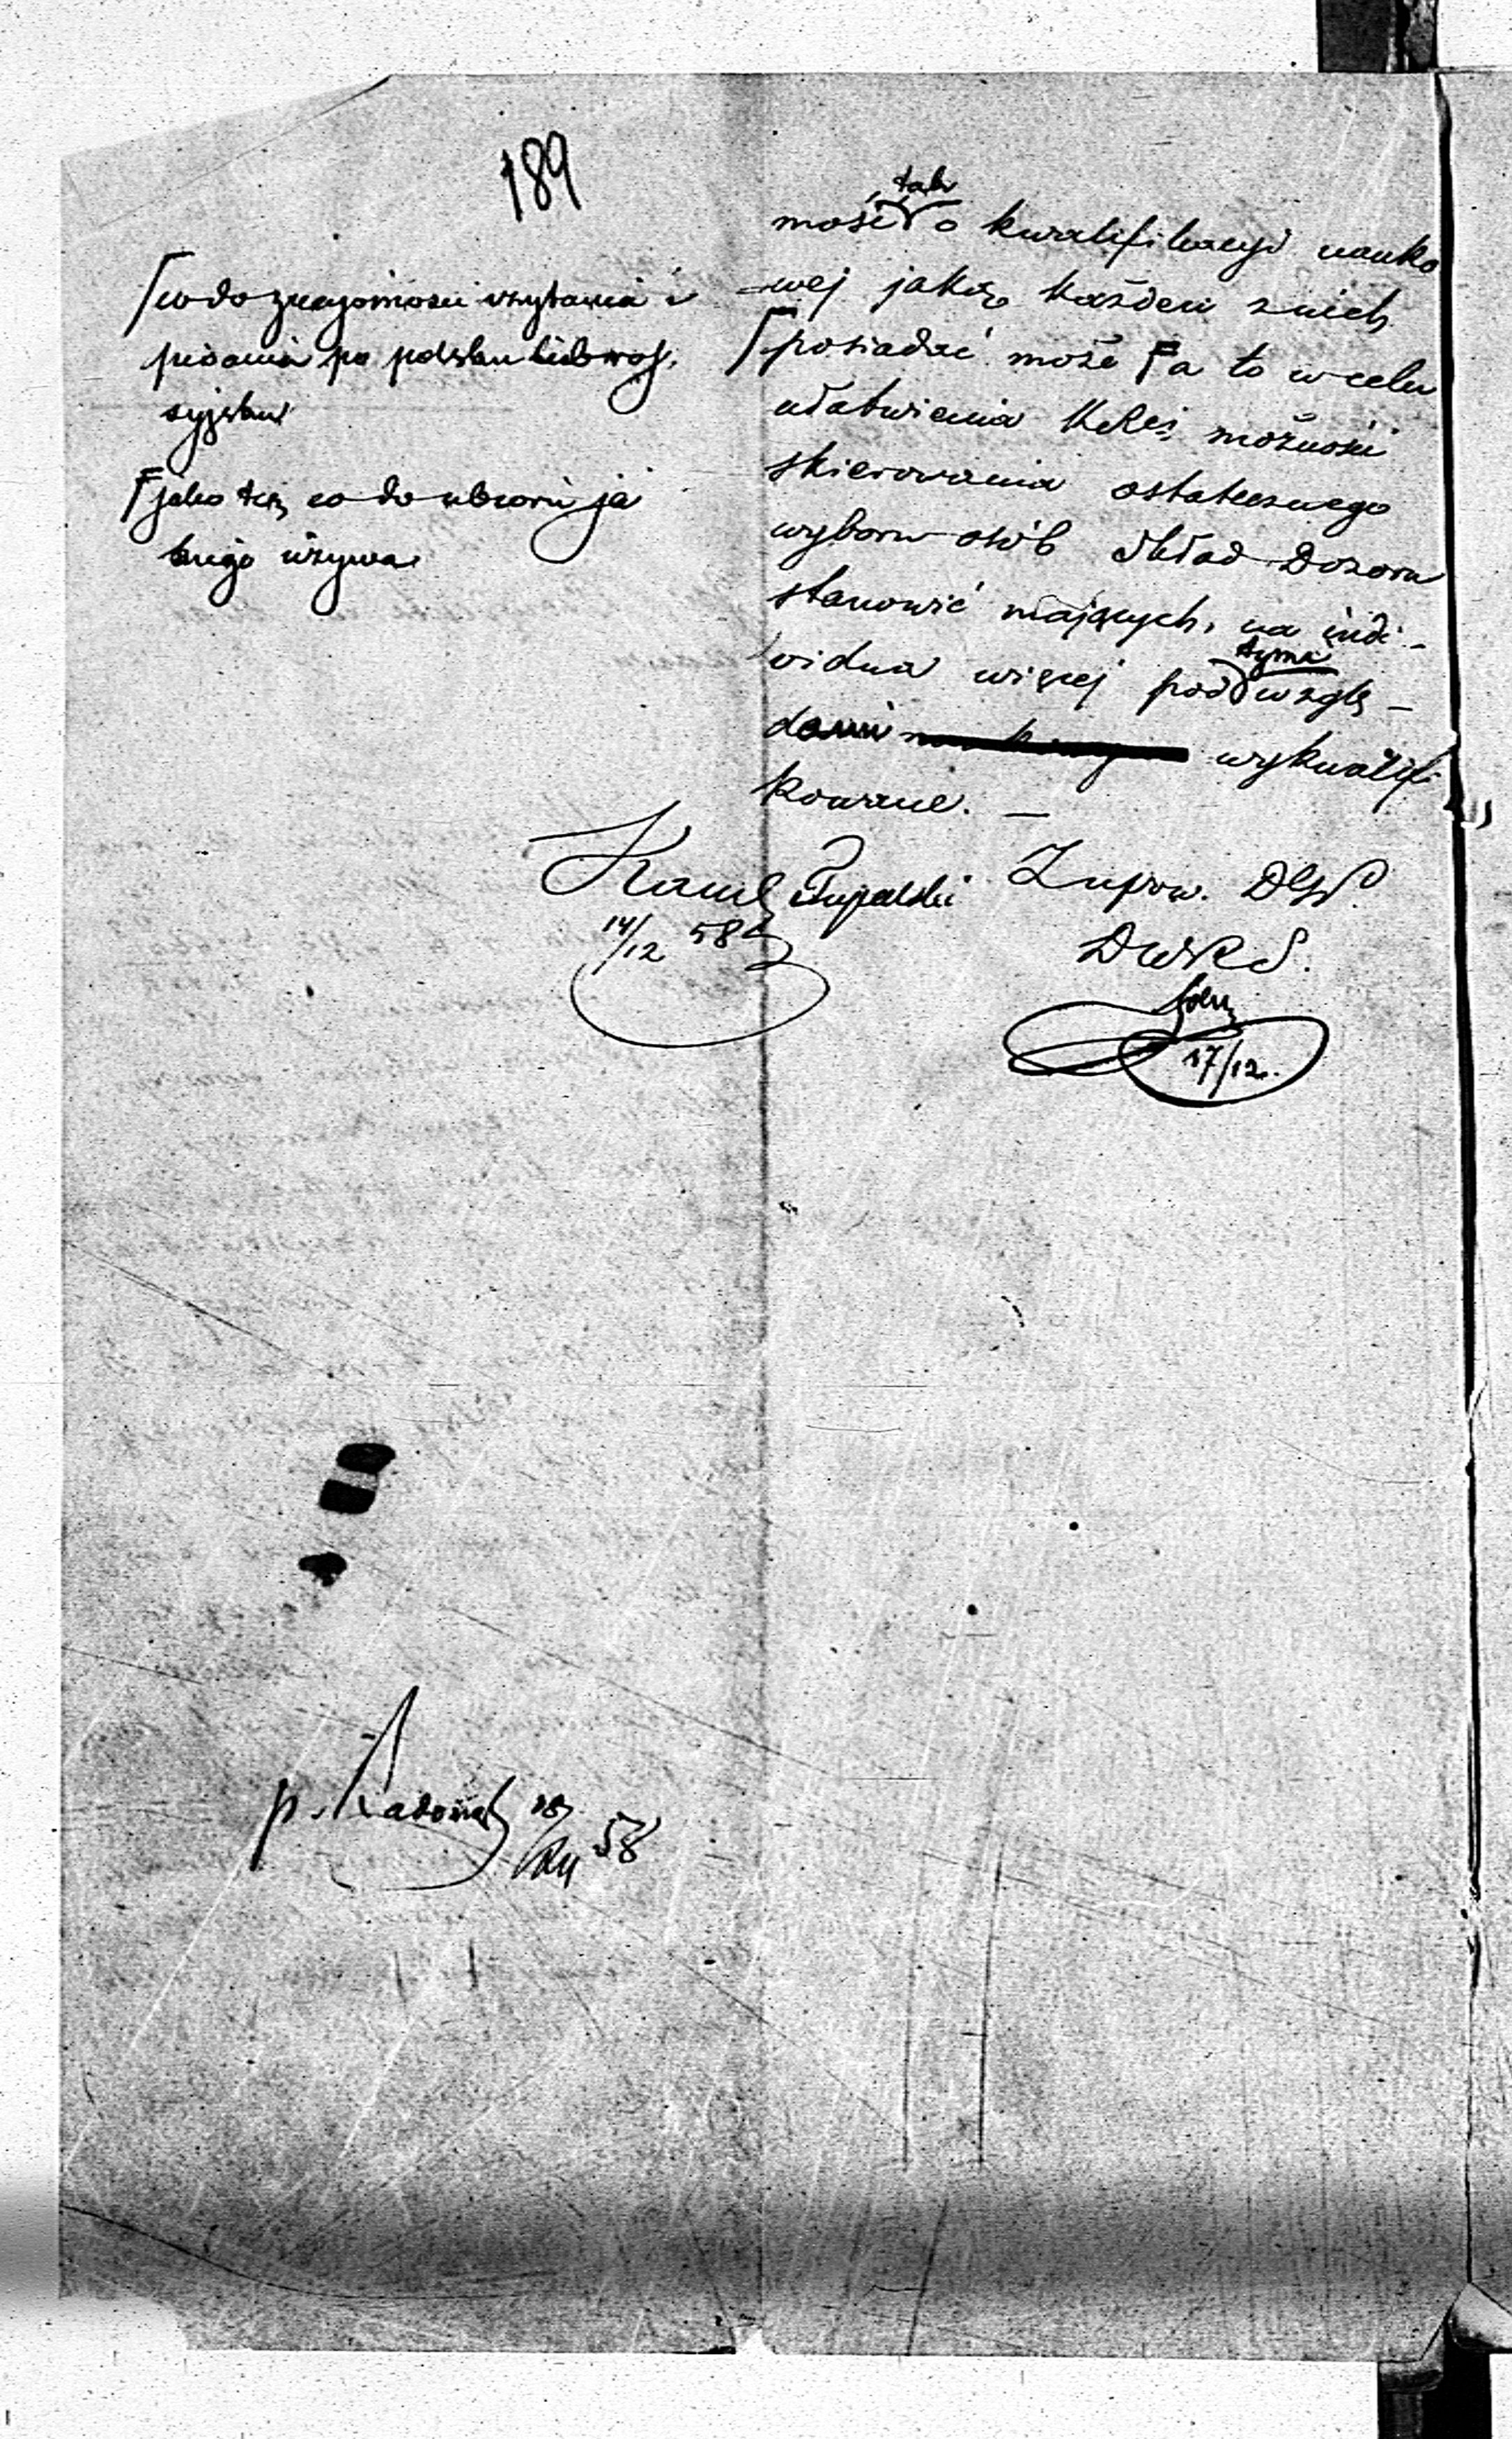 189
co do znajomości czytania i
pisania po polsku lub ros-
syjsku
jako też co do ubioru ja
kiego używa
tak
mości o kwalifikacyi nauko
-wej jaką każden z nich
posiadać może a to w celu
ułatwienia KRei możności
skierowania ostatecznego
wyboru osób skład Dozoru
stanowić mających, na indi-
tymi
vidua więcej pod wzglę-
dami wykwalifi
kowane. —
Kamil Zupow. DGW.
14/12 58 DWRS.
17/12.
p. Radomsk 58